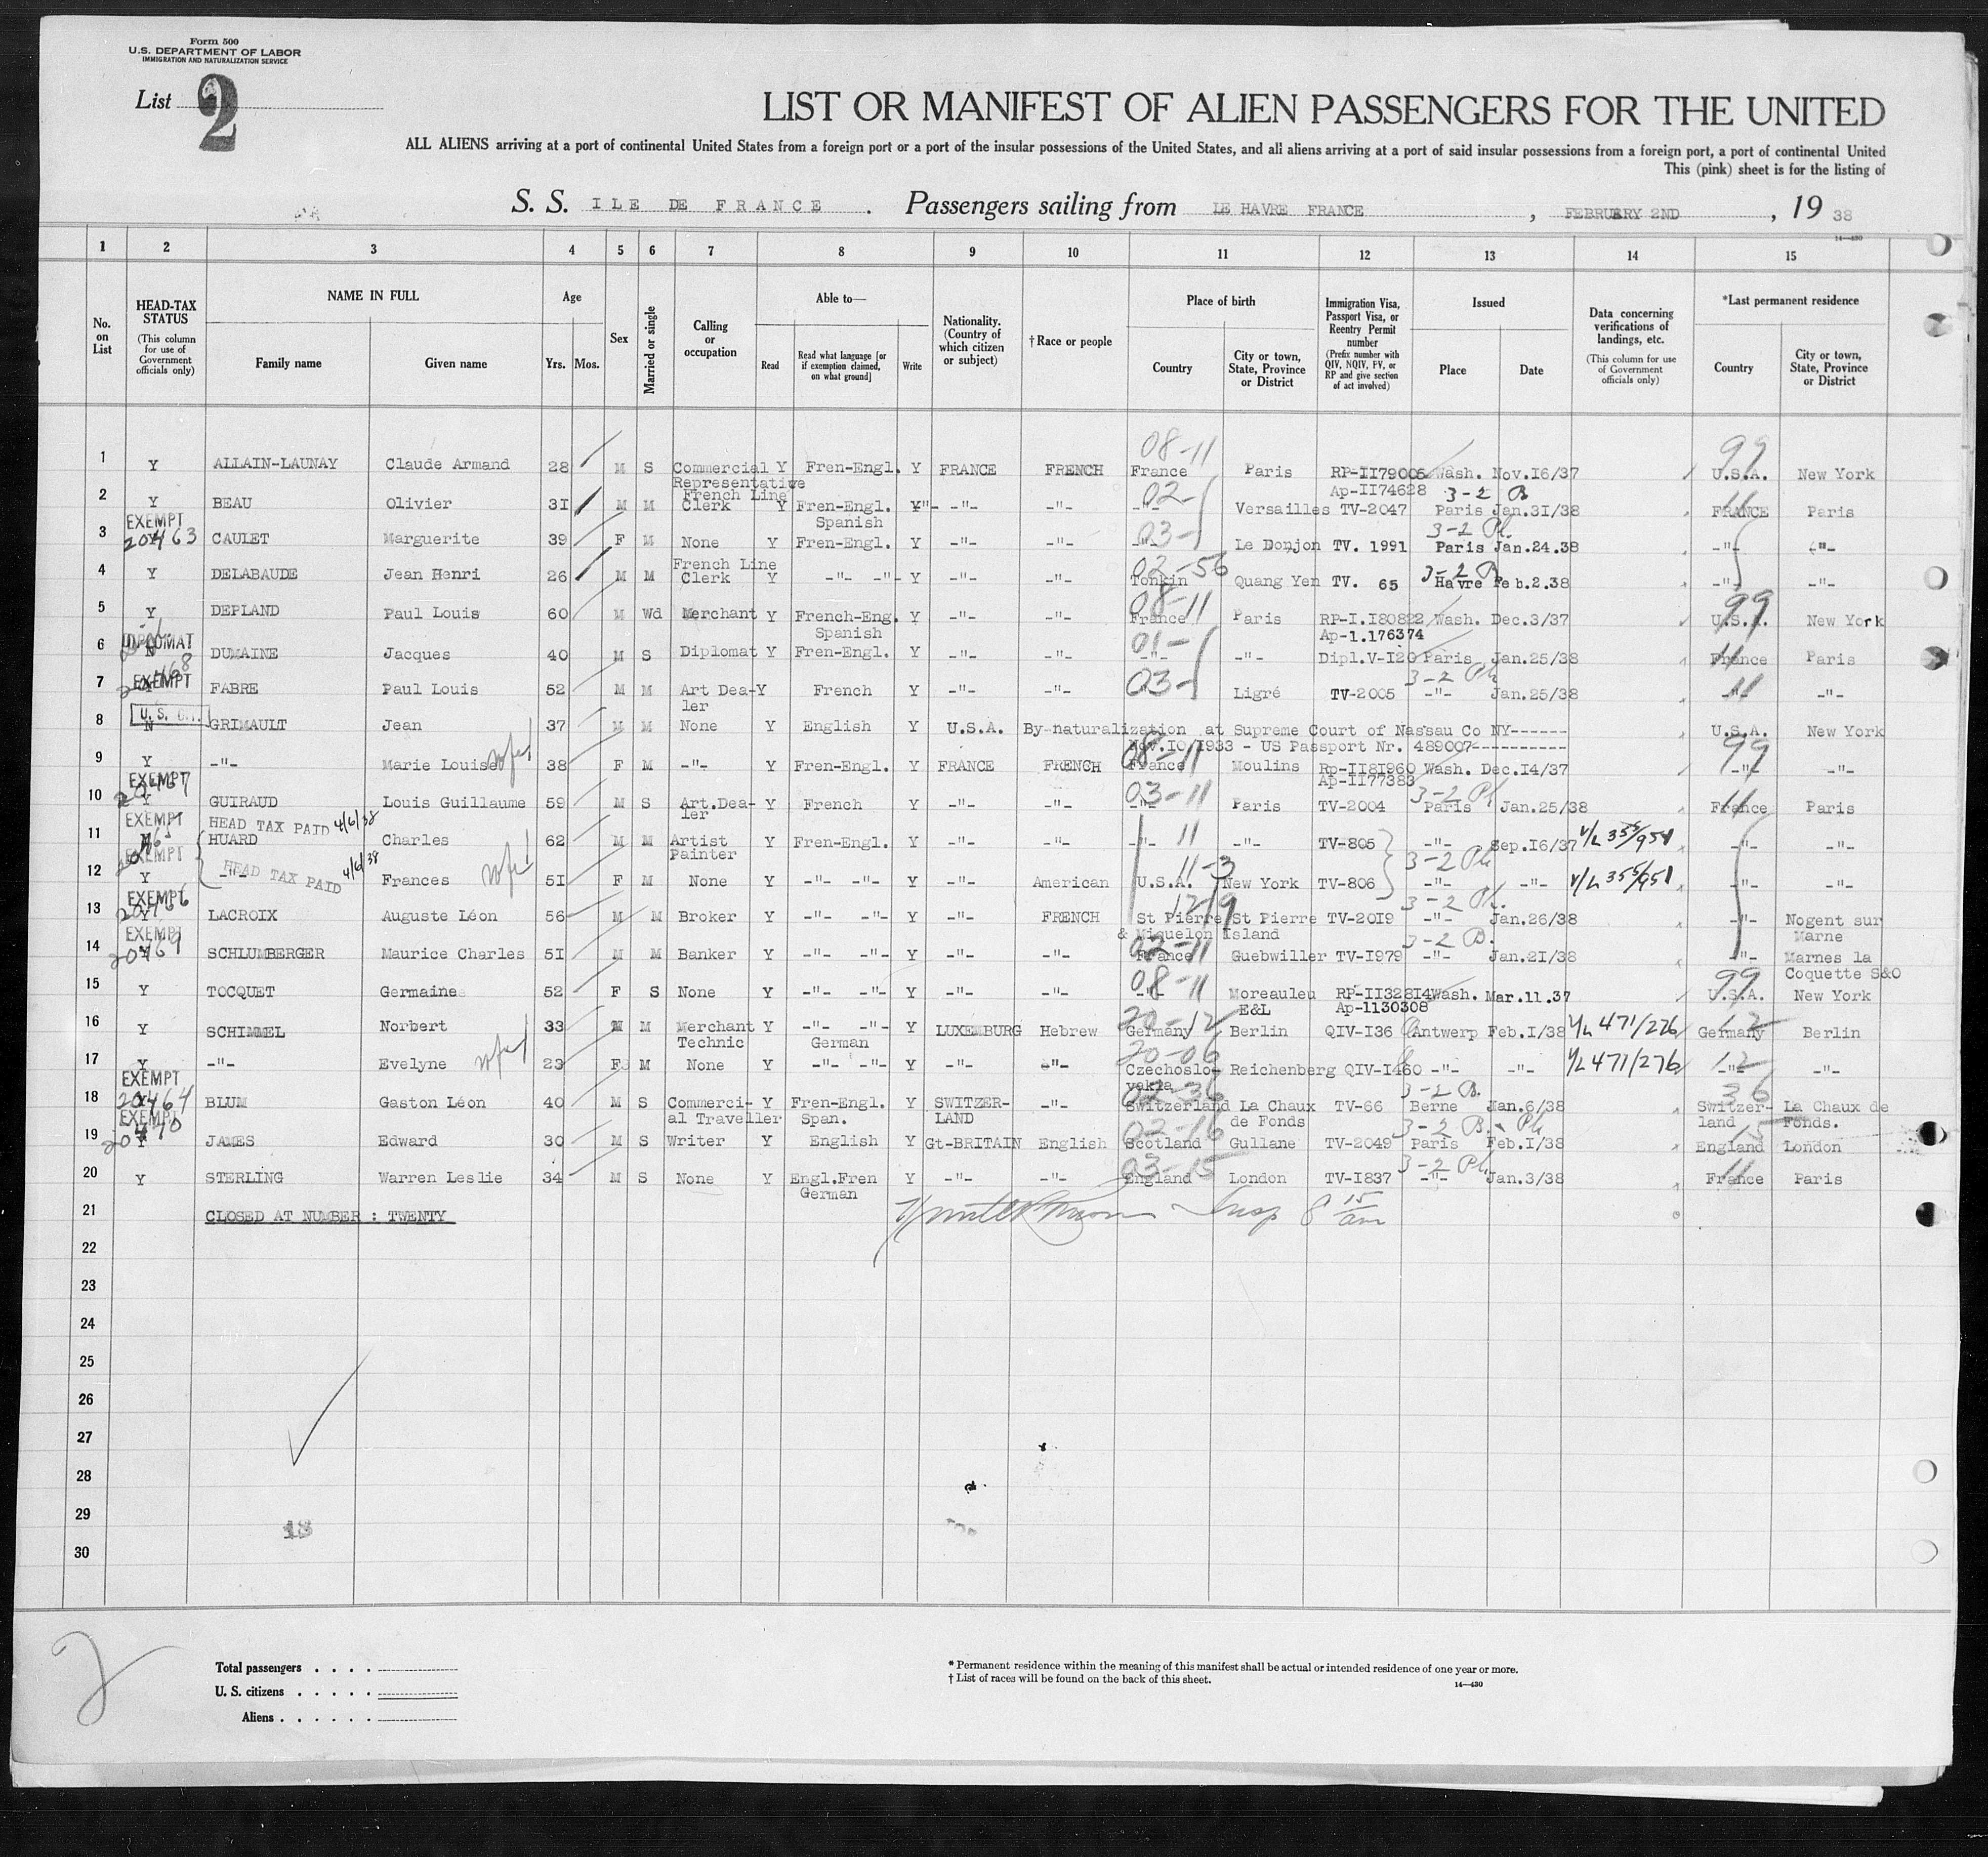 Form 500
U.S. DEPARTMENT OF LABOR
IMMIGRATION AND NATURALIZATION SERVICE
List 2
LIST OR MANIFEST OF ALIEN PASSENGERS FOR THE UNITED
ALL ALIENS arriving at a port of continental United States from a foreign port or a port of the insular possessions of the United States, and all aliens arriving at a port of said insular possessions from a foreign port, a port of continental United
This (pink) sheet is for the listing of
S. S. ILE DE FRANCE . Passengers sailing from LE HAVRE FRANCE , FEBRUARY 2ND , 19 38
14—430
1 2 3 4 5 6 7 8 9 10 11 12 13 14 15
No. on List
HEAD-TAX STATUS (This column for use of Government officials only)
NAME IN FULL
Family name Given name
Age
Yrs. Mos.
Sex
Married or single
Calling or occupation
Able to—
Read Read what language [or if exemption claimed, on what ground] Write
Nationality. (Country of which citizen or subject)
†Race or people
Place of birth
Country City or town, State, Province or District
Immigration Visa, Passport Visa, or Reentry Permit number (Prefix number with QIV, NQIV, PV, or RP and give section of act involved)
Issued
Place Date
Data concerning verifications of landings, etc. (This column for use of Government officials only)
*Last permanent residence
Country City or town, State, Province or District
08-11 99
1 Y ALLAIN-LAUNAY Claude Armand 28 M S Commercial Y Fren-Engl. Y FRANCE FRENCH France Paris RP-II79006 Wash. Nov.I6/37 U.S.A. New York
Representative Ap-II74628
French Line 02- 3-2 B 11
2 Y BEAU Olivier 3I M M Clerk Y Fren-Engl. Y -"- -"- -"- Versailles TV-2047 Paris Jan.3I/38 FRANCE Paris
Spanish
EXEMPT 20463 03- 3-2 Ph.
3 Y CAULET Marguerite 39 F M None Y Fren-Engl. Y -"- -"- -"- Le Donjon TV. 1991 Paris Jan.24.38 -"- -"-
French Line 02-56 3-2 B
4 Y DELABAUDE Jean Henri 26 M M Clerk Y -"- -"- Y -"- -"- Tonkin Quang Yen TV. 65 Havre Feb.2.38 -"- -"-
08-11 99
5 Y DEPLAND Paul Louis 60 M Wd Merchant Y French-Eng. Y -"- -"- France Paris RP-I.I80822 Wash. Dec.3/37 U.S.A. New York
Spanish Ap-1.176374
DIPLOMAT 01- 11
6 N DUMAINE Jacques 40 M S Diplomat Y Fren-Engl. Y -"- -"- -"- -"- Dipl.V-I20 Paris Jan.25/38 France Paris
EXEMPT 20468 03- 3-2 Ph 11
7 Y FABRE Paul Louis 52 M M Art Dea- Y French Y -"- -"- Ligré TV-2005 -"- Jan.25/38 -"- -"-
ler
U.S. CIT.
8 N GRIMAULT Jean 37 M M None Y English Y U.S.A. By naturalization at Supreme Court of Nassau Co NY------ U.S.A. New York
Nov.IO/1933 - US Passport Nr. 489007----------
wife 08-11 99
9 Y -"- Marie Louise 38 F M -"- Y Fren-Engl. Y FRANCE FRENCH France Moulins Rp-II8I960 Wash. Dec.I4/37 -"- -"-
Ap-II77383
EXEMPT 20467 03-11 3-2 Ph 11
10 Y GUIRAUD Louis Guillaume 59 M S Art.Dea- Y French Y -"- -"- -"- Paris TV-2004 Paris Jan.25/38 France Paris
ler
EXEMPT HEAD TAX PAID 4/6/38
11 HUARD Charles 62 M M Artist Y Fren-Engl. Y -"- -"- -"- 11 -"- TV-805 -"- Sep.I6/37 V/L 355/951 -"- -"-
Painter
EXEMPT HEAD TAX PAID 4/6/38 wife 11-3 3-2 Ph
12 Y -"- Frances 5I F M None Y -"- -"- Y -"- American U.S.A. New York TV-806 -"- -"- V/L 355/951 -"- -"-
EXEMPT 20466 12-19 3-2 Ph.
13 Y LACROIX Auguste Léon 56 M M Broker Y -"- -"- Y -"- FRENCH St Pierre St Pierre TV-20I9 -"- Jan.26/38 -"- Nogent sur
& Miquelon Island Marne
EXEMPT 20469 02-11 3-2 B.
14 SCHLUMBERGER Maurice Charles 5I M M Banker Y -"- -"- Y -"- -"- France Guebwiller TV-I979 -"- Jan.2I/38 -"- Marnes la
Coquette S&O
08-11 99
15 Y TOCQUET Germaine 52 F S None Y -"- -"- Y -"- -"- -"- Moreauleu RP-II328I4 Wash. Mar.11.37 U.S.A. New York
E&L Ap-1130308
20-12 12
16 Y SCHIMMEL Norbert 33 M M Merchant Y -"- -"- Y LUXEMBURG Hebrew Germany Berlin QIV-I36 Antwerp Feb.I/38 V/L 471/276 Germany Berlin
Technic German
wife 20-06 12
17 Y -"- Evelyne 23 F M None Y -"- -"- Y -"- -"- Czechoslo- Reichenberg QIV-I460 -"- -"- V/L 471/276 -"- -"-
vakia
EXEMPT 20464 02-36 3-2 B. 36
18 Y BLUM Gaston Léon 40 M S Commerci- Y Fren-Engl. Y SWITZER- -"- Switzerland La Chaux TV-66 Berne Jan.6/38 Switzer- La Chaux de
al Traveller Span. LAND de Fonds land Fonds.
EXEMPT 20470 02-16 3-2 B. Ph 15
19 Y JAMES Edward 30 M S Writer Y English Y Gt-BRITAIN English Scotland Gullane TV-2049 Paris Feb.I/38 England London
03-15 3-2 Ph. 11
20 Y STERLING Warren Leslie 34 M S None Y Engl.Fren Y -"- -"- England London TV-I837 -"- Jan.3/38 France Paris
German
21 CLOSED AT NUMBER : TWENTY Insp 8 15 am
22
23
24
25
26
27
28
29
30
2
Total passengers . . . .
U. S. citizens . . . . .
Aliens . . . . . .
* Permanent residence within the meaning of this manifest shall be actual or intended residence of one year or more.
† List of races will be found on the back of this sheet.
14—430